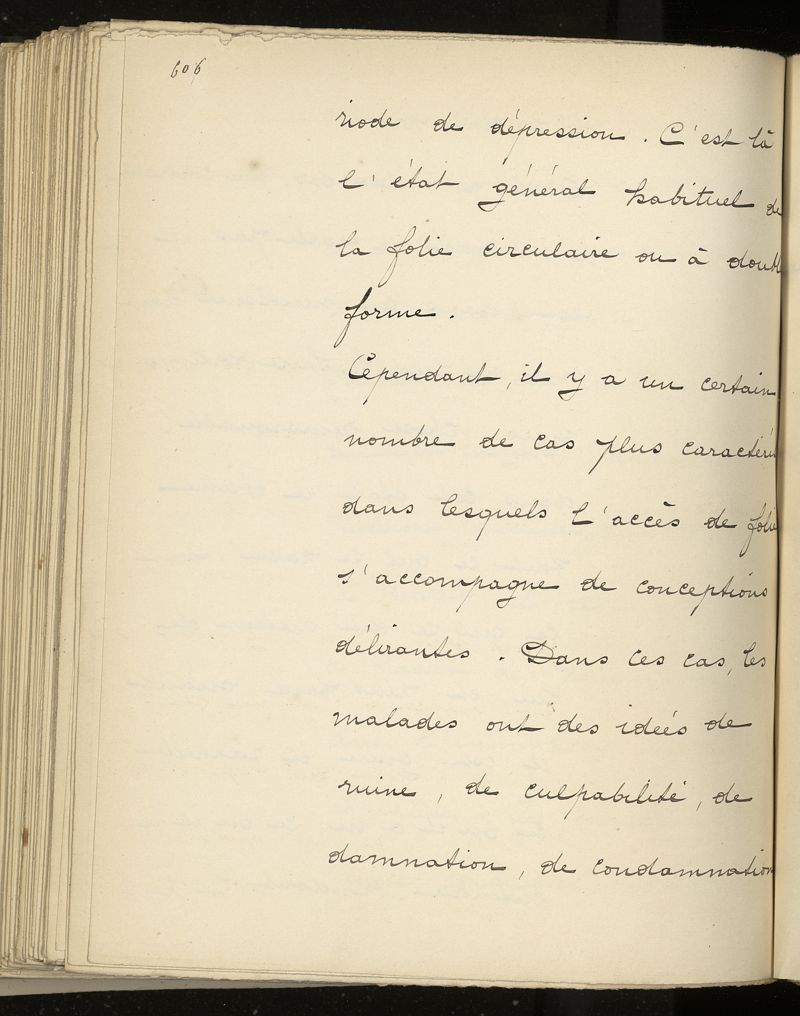 606
riode de dépression. C'est là
l'état général habituel de
la folie circulaire ou à doubl
forme.
Cependant, il y a un certain
nombre de cas plus caractéri
dans lesquels l'accès de folie
s'accompagne de conceptions
délirantes. Dans ces cas, les
malades ont des idées de
ruine, de culpabilité, de
damnation, de condamnation